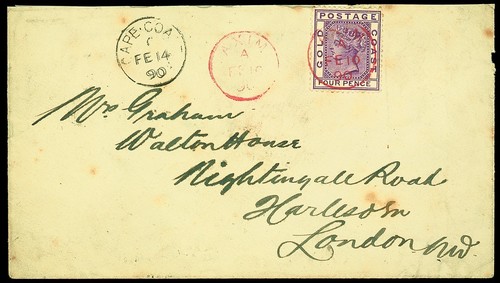 CAPE COA
C
FE 14
90
A
90
POSTAGE
GOLD COAST
FE 10
90
FOUR PENCE
Mrs Graham
Walton House
Nightingall Road
Harlesdn
London NW.